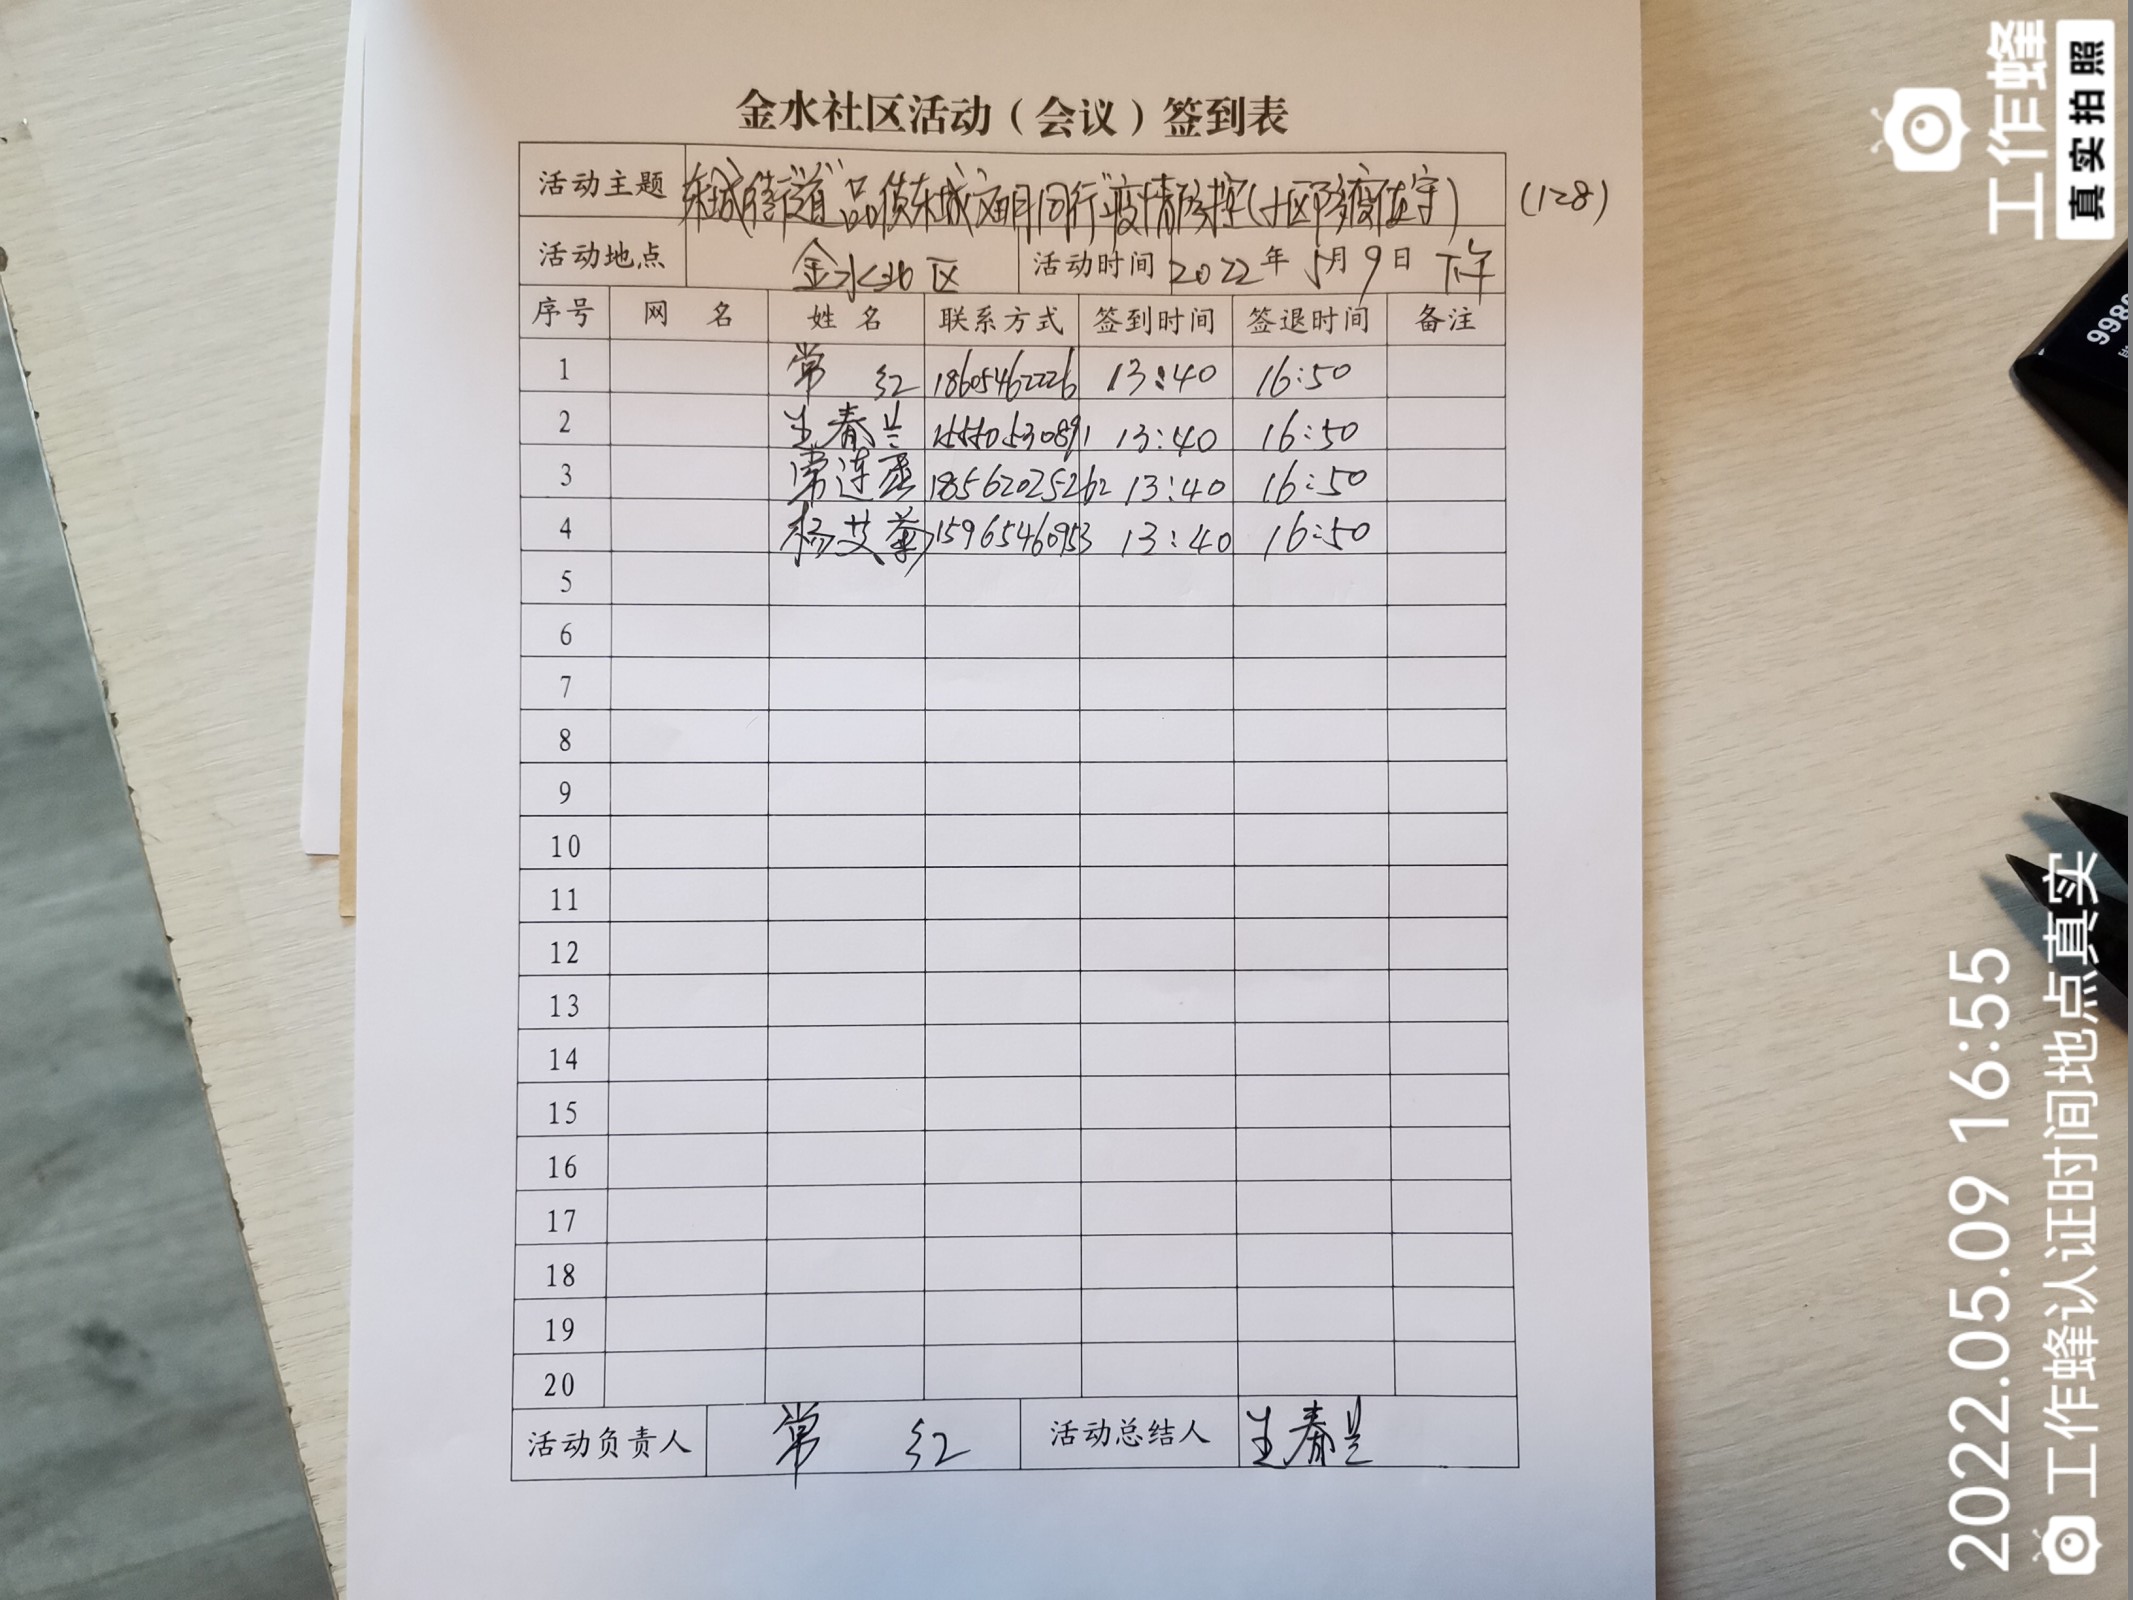 金水社区活动（会议）签到表
活动主题 东城街道"品质东城 文明同行"疫情防控(小区防疫值守) (128)
活动地点 金水社区 活动时间 2022年5月9日 下午
序号 网 名 姓 名 联系方式 签到时间 签退时间 备注
1 常 红 18605462226 13:40 16:50
2 王春兰 15550530891 13:40 16:50
3 常连 18562025262 13:40 16:50
4 杨艾菊 15965460953 13:40 16:50
5
6
7
8
9
10
11
12
13
14
15
16
17
18
19
20
活动负责人 常 红 活动总结人 王春兰
工作蜂
真实拍照
2022.05.09 16:55
工作蜂认证时间地点真实
998